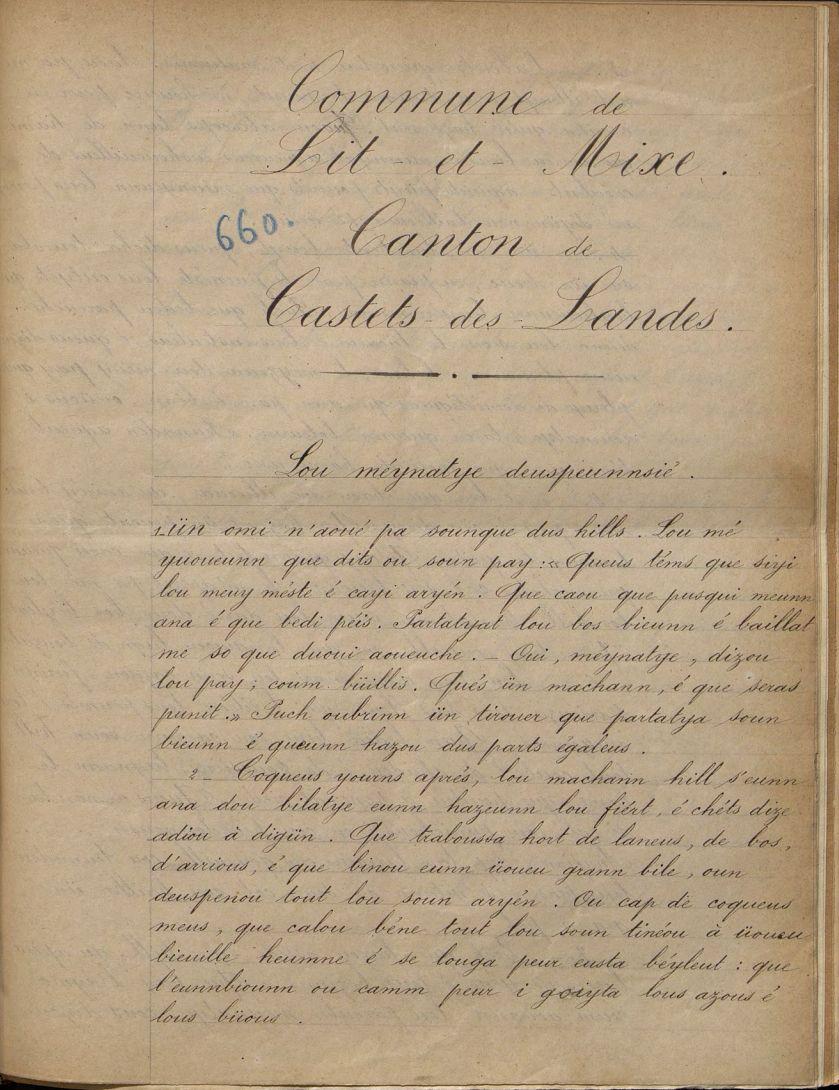 Commune de
Lit-et-Mixe.
660.
Canton de
Castets-des-Landes.
Lou méynatye deuspeunnsié.
1_ ün omi n'aoué pa sounque dus hills. Lou mé
yuoueunn que dits ou soun pay : « Queus téms que siyi
lou meuy méste é cayi aryén. Que caou que pusqui meunn
ana é que bedi péis. Partatyat lou bos bieunn é baillat
me so que duoui aoueuche. _ Oui, méynatye, dizou
lou pay; coum büillis. Qués ün machann, é que seras
punit. » Puch oubrinn ün tirouer que partatya soun
bieunn é queunn hazou dus parts égaleus.
2_ Coqueus yourns aprés, lou machann hill s'eunn
ana dou bilatye eunn hazeunn lou fiért, é chéts dize
adiou à digün. Que traloussa hort de laneus, de bos,
d'arrious, é que binou eunn üoueu grann bile, oun
deuspenou tout lou soun aryén. Ou cap de coqueus
meus, que calou béne tout lou soun tinéou à üoueu
bieuille heumne é se louga peur eusta béyleut : que
l'eunnbiounn ou camm peur i goiyta lous azous é
lous büous.